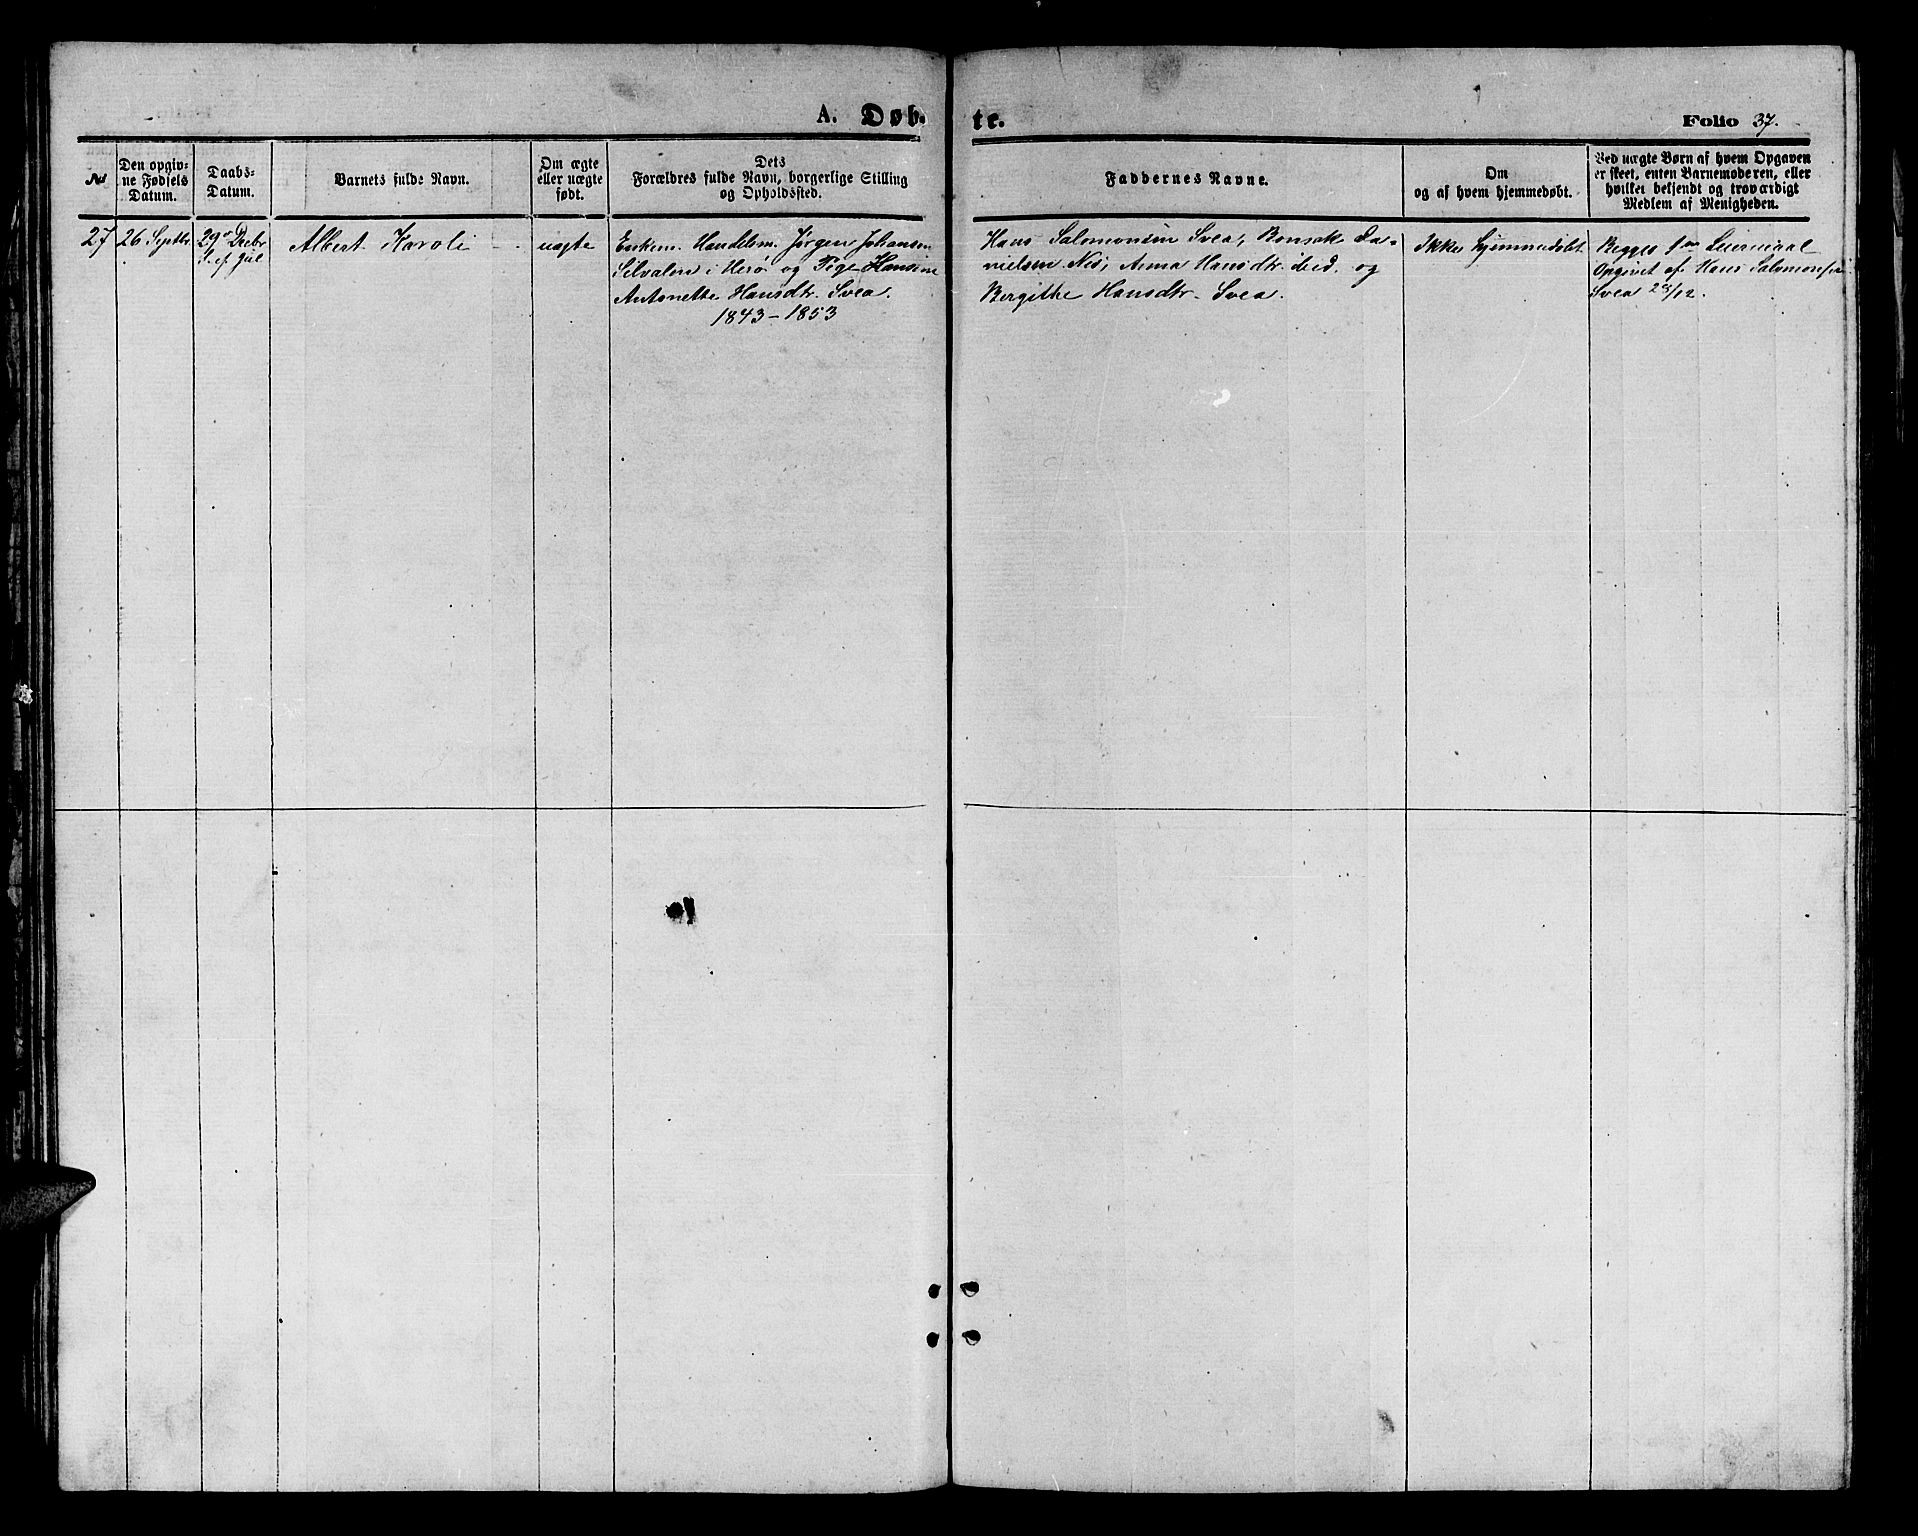 A. Døb-
te.
Folio 37.
№
Den opgiv-
ne Fødsels
Datum.
Daabs-
Datum.
Barnets fulde Navn.
Om ægte
eller uægte
født.
Dets
Forældres fulde Navn, borgerlige Stilling
og Opholdssted.
Faddernes Navne.
Om
og af hvem hjemmedøbt.
Ved uægte Børn af hvem Opgaven
er skeet, enten Barnemoderen, eller
hvilket bekjendt og troværdigt
Medlem af Menigheden.
27
26 Septbr.
29 Decbr
S. ef Jul
Albert Karoli
uægte
Enkem. Handelsm. Jörgen Johansen
Silvalen i Herö og Pige Hansine
Antonette Hansdtr. Svea.
1843 - 1853
Hans Salomonsen Svea, Bonsak Da-
nielsen Nis, Anna Hansdtr. ibid. og
Bergithe Hansdtr. Svea.
Ikke hjemmedöbt
Begges 1ste Leiermaal
Opgivet af Hans Salomonsen
Svea 28/12.